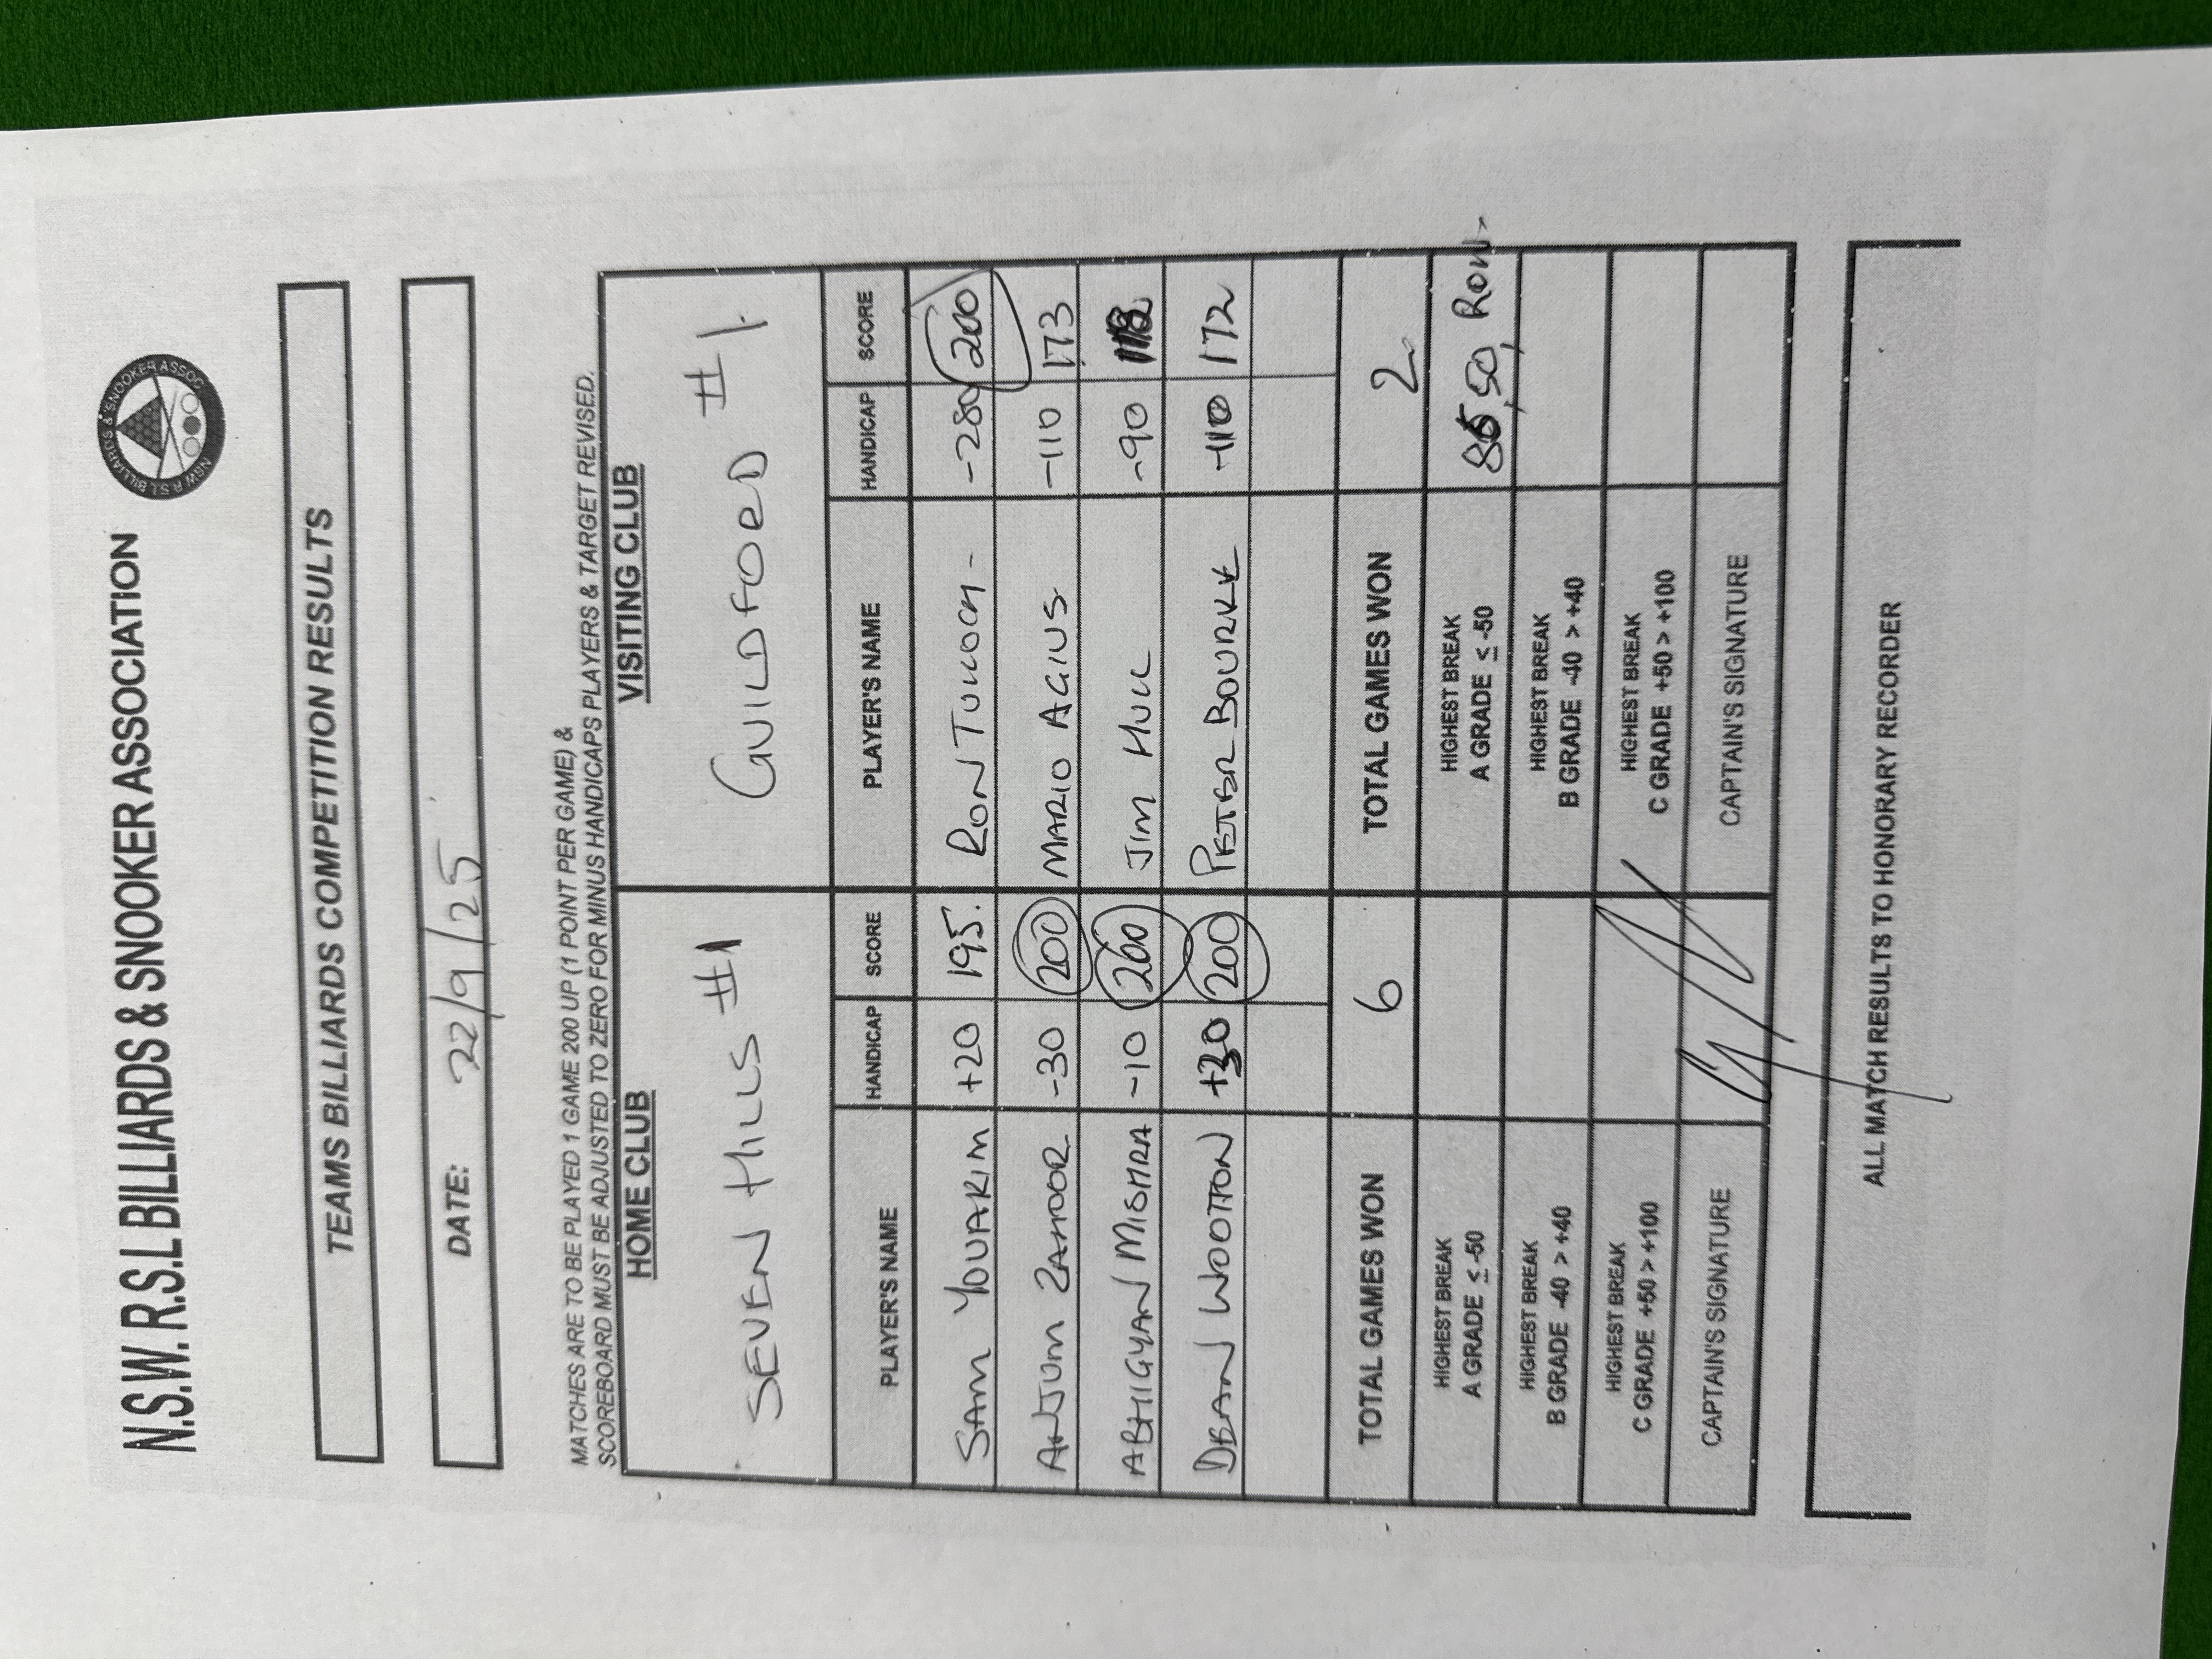 N.S.W. R.S.L BILLIARDS & SNOOKER ASSOCIATION
NSW R.S.L BILLIARDS & SNOOKER ASSOC.
TEAMS BILLIARDS COMPETITION RESULTS
DATE: 22/9/25
MATCHES ARE TO BE PLAYED 1 GAME 200 UP (1 POINT PER GAME) &
SCOREBOARD MUST BE ADJUSTED TO ZERO FOR MINUS HANDICAPS PLAYERS & TARGET REVISED.
HOME CLUB VISITING CLUB
SEVEN HILLS #1 GUILDFORD #1
PLAYER'S NAME HANDICAP SCORE PLAYER'S NAME HANDICAP SCORE
SAM YOUARIM +20 195. RON -280 200
ANJUM ZAHOOR -30 200 MARIO AGIUS -110 173
ABHIGYAN MISHRA -10 200 JIM HULL -90
DEAN WOOTTON +30 200 PETER BOURKE -110 172
TOTAL GAMES WON 6 TOTAL GAMES WON 2
HIGHEST BREAK HIGHEST BREAK
A GRADE ≤ -50 A GRADE ≤ -50 50, RON
HIGHEST BREAK HIGHEST BREAK
B GRADE -40 > +40 B GRADE -40 > +40
HIGHEST BREAK HIGHEST BREAK
C GRADE +50 > +100 C GRADE +50 > +100
CAPTAIN'S SIGNATURE CAPTAIN'S SIGNATURE
ALL MATCH RESULTS TO HONORARY RECORDER